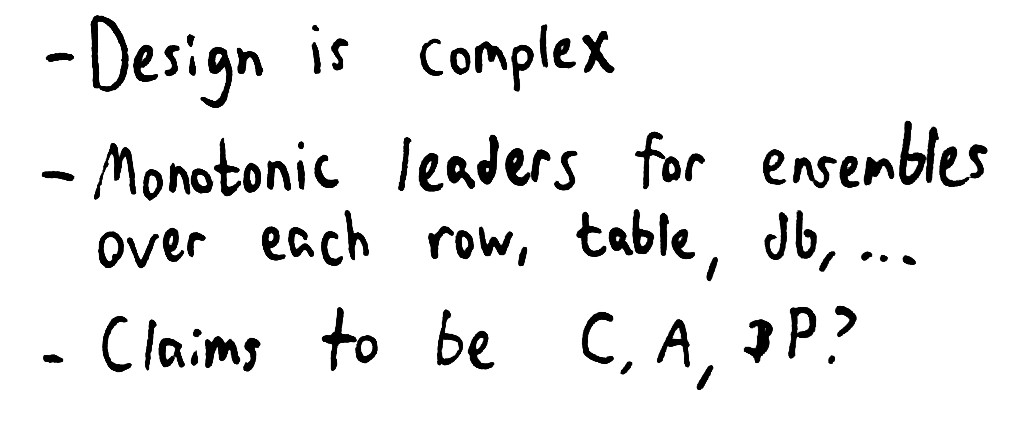 - Design is complex
- Monotonic leaders for ensembles
over each row, table, db, ...
- Claims to be C, A, P?